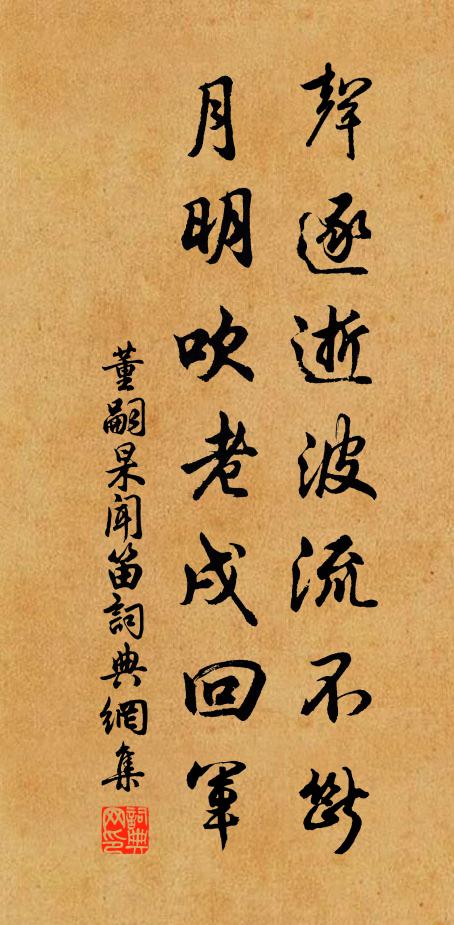 聲逐逝波流不斷
月明吹老戍回軍
董嗣杲聞笛詞典網集
詞典网印